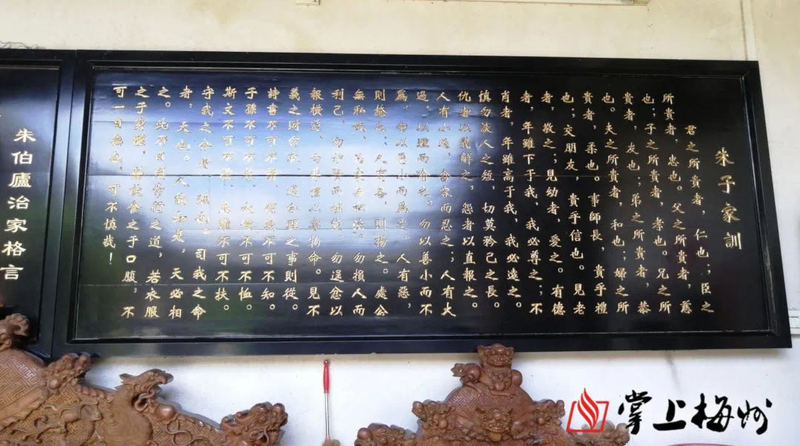 朱子家訓
君之所貴者，仁也；臣之
所貴者，忠也。父之所貴者，慈
也；子之所貴者，孝也。兄之所
貴者，友也；弟之所貴者，恭
也。夫之所貴者，和也；婦之所
貴者，柔也。事師長，貴乎禮
也；交朋友，貴乎信也。見老
者，敬之；見幼者，愛之。有德
者，年雖下于我，我必尊之；不
肖者，年雖高于我，我必遠之。
慎勿談人之短，切莫矜己之長。
仇者以義解之，怨者以直報之。
人有小過，含容而忍之；人有大
過，以理而諭之。勿以善小而不
為，勿以惡小而為之。人有惡，
則掩之；人有善，則揚之。處公
無私仇，治家無私法。勿損人而
利己，勿妒賢而嫉能。勿逞忿以
報橫逆，勿非禮以害物命。見不
義之財勿取，遇合理之事則從。
詩書不可不學，禮義不可不知。
子孫不可不教，童僕不可不恤。
斯文不可不敬，患難不可不扶。
守我之分者，禮也；司我之命
者，天也。人能如是，天必相
之。此乃日用常行之道，若衣服
之于身體，飲食之于口腹，不
可一日無也，可不慎哉！
朱伯廬治家格言
掌上梅州